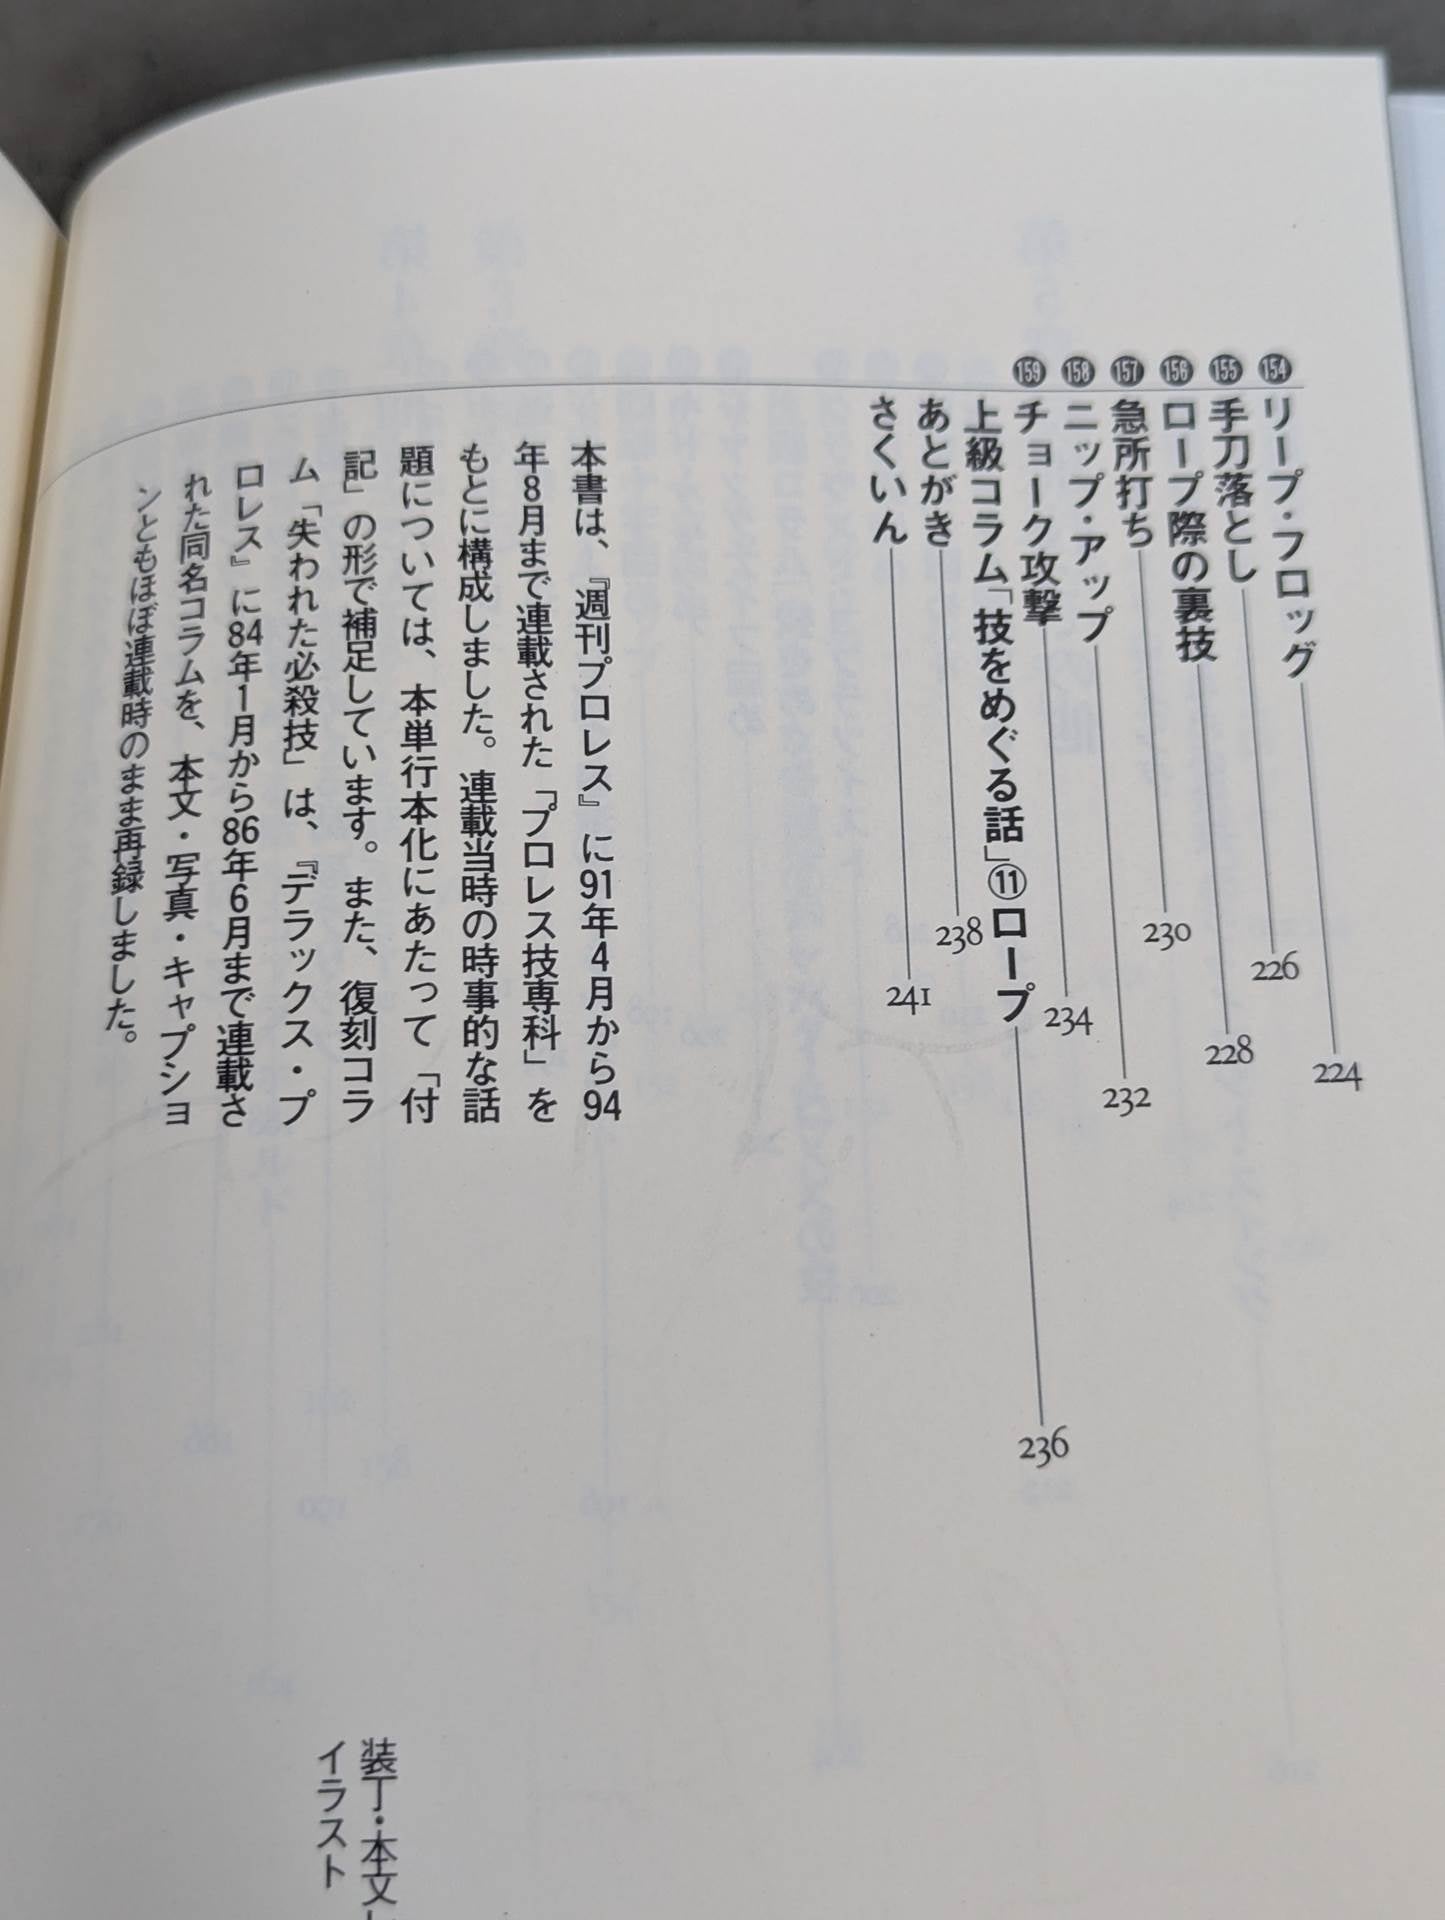 154 リープ・フロッグ 224
155 手刀落とし 226
156 ロープ際の裏技 228
157 急所打ち 230
158 ニップ・アップ 232
159 チョーク攻撃 234
上級コラム「技をめぐる話」⑪ロープ 236
あとがき 238
さくいん 241
本書は、『週刊プロレス』に91年4月から94
年8月まで連載された「プロレス技専科」を
もとに構成しました。連載当時の時事的な話
題については、本単行本化にあたって「付
記」の形で補足しています。また、復刻コラ
ム「失われた必殺技」は、『デラックス・プ
ロレス』に84年1月から86年6月まで連載さ
れた同名コラムを、本文・写真・キャプショ
ンともほぼ連載時のまま再録しました。
装丁・本文レ
イラスト